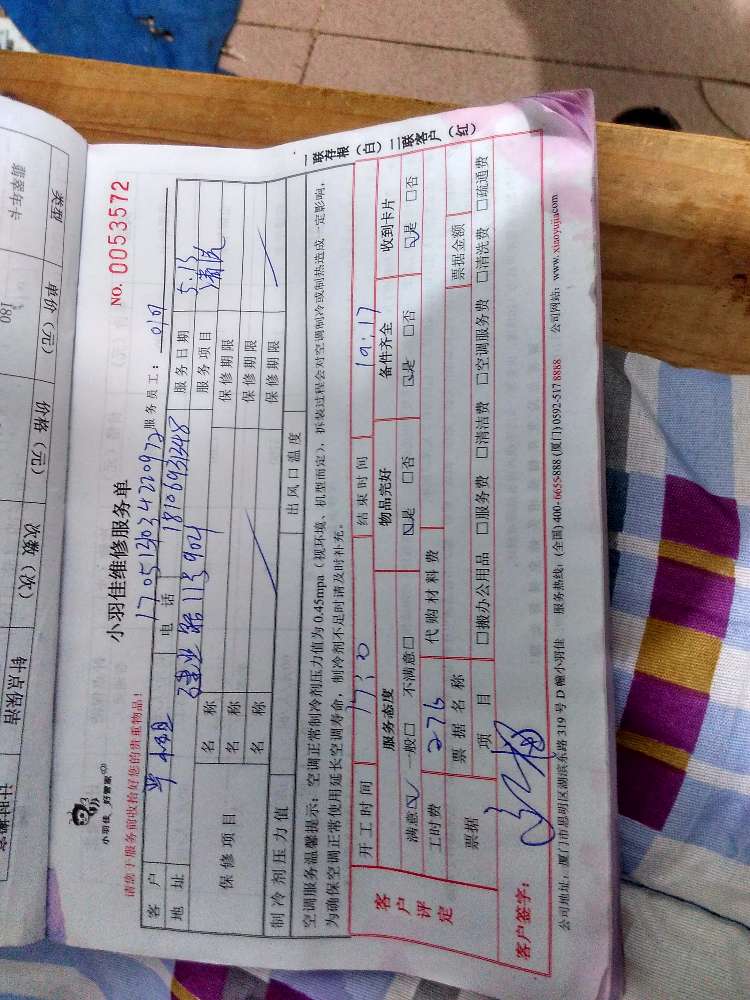 小羽佳 好管家
小羽佳维修服务单
NO. 0053572
请您于服务前收拾好您的贵重物品!
17051303422097
服务员工:
客户
电话 18106931248
服务日期 5.13
地址 建业路 113 904
服务项目 清洗
保修项目
名称 保修期限
名称 保修期限
名称 保修期限
制冷剂压力值 出风口温度
空调服务温馨提示:空调正常制冷剂压力值为0.45mpa(视环境、机型而定),拆装过程会对空调制冷或制热造成一定影响,
为确保空调正常使用延长空调寿命,制冷剂不足时请及时补充。
一联存根(白)二联客户(红)
客户评定
开工时间 17:20 结束时间 19:17
服务态度 物品完好 备件齐全 收到卡片
满意☑ 一般□ 不满意□ ☑是 □否 ☑是 □否 ☑是 □否
工时费 276 代购材料费
票据 票据名称 票据金额
项目 □搬办公用品 □服务费 □清洁费 □空调服务费 □清洗费 □疏通费
客户签字:
公司地址:厦门市思明区湖滨东路319号D幢小羽佳 服务热线:(全国)400-6655-888 (厦门)0592-517 8888 公司网站:www.xiaoyujia.com
类型 单价(元) 价格(元) 次数(次) 钟点保洁
翡翠年卡 180